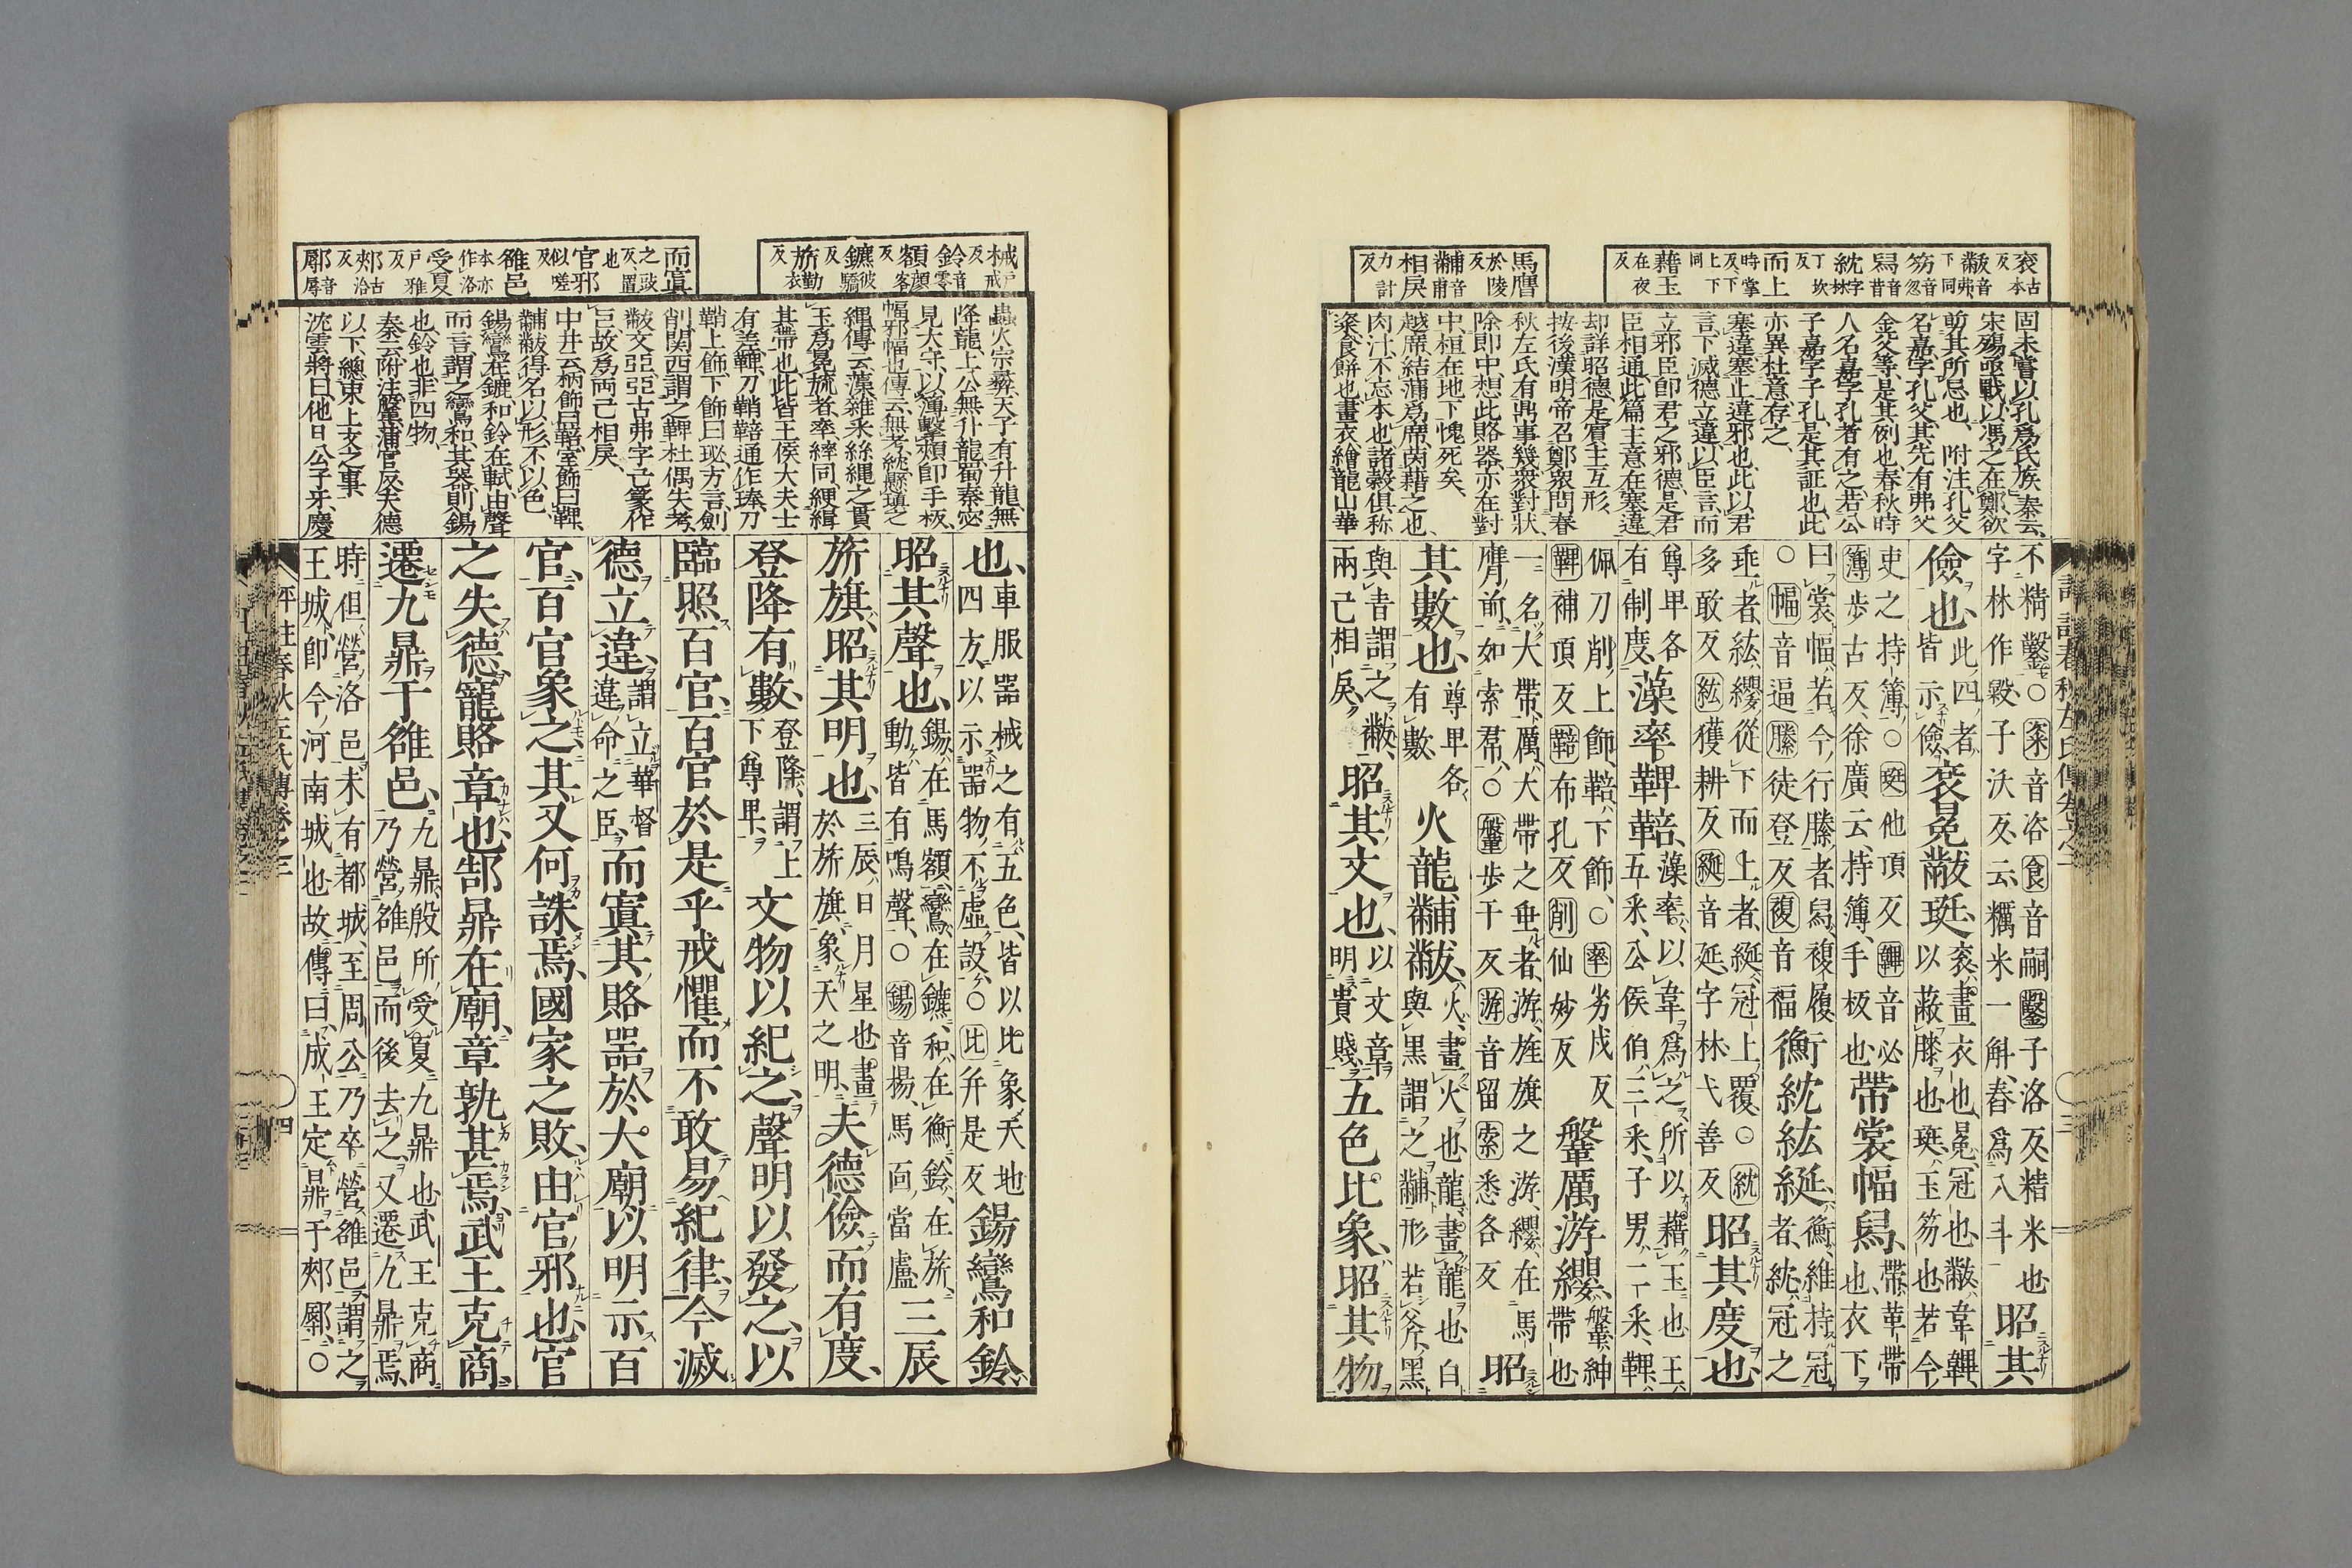 袞古本反 黻音弗下同 笏音忽 舄音昔 紞字林丁坎反 而上時掌反下上下同 藉玉在夜反
馬膺於陵反 黼音甫 相戾力計反
固未嘗以孔爲氏族秦云
宋殤亟戰以馮之在鄭欲
剪其所忌也附注孔父
名嘉字孔父其先有弗父
金父等是其例也春秋時
人名嘉字孔者有之若公
子嘉字子孔是其証也此
亦異杜意存之
塞違塞止違邪也此以君
言下滅德立違以臣言而
立邪臣即君之邪德是君
臣相通此篇主意在塞違
却詳昭德是賓主互形
按後漢明帝召鄭衆問春
秋左氏有鼎事幾衆對狀
除即中想此賂器亦在對
中桓在地下愧死矣
越席結蒲爲席茵藉之也
肉汁不忘本也諸穀俱称
粢食餅也畫衣繪龍山華
不精鑿○粢音咨食音嗣鑿子洛反精米也
字林作毇子沃反云糲米一斛舂爲八斗昭其
儉也此四者皆示儉袞冕黻珽袞畫衣也冕冠也黻韋韠以蔽膝也珽玉笏也若今
吏之持簿○珽他頂反韠音必簿步古反徐廣云持簿手板也帶裳幅舄帶革帶也衣下
曰裳幅若今行縢者舄複履○幅音逼縢徒登反複音福衡紞紘綖衡維持冠者紞冠之
垂者紘纓從下而上者綖冠上覆○紞多敢反紘獲耕反綖音延字林弋善反昭其度也
尊卑各有制度藻率鞞鞛藻率以韋爲之所以藉玉也王五采公侯伯三采子男二采鞞
佩刀削上飾鞛下飾○率劣戌反鞞補頂反鞛布孔反削仙妙反鞶厲游纓鞶紳帶也
一名大帶厲大帶之垂者游旌旗之游纓在馬膺前如索帬○鞶步干反游音留索悉各反昭
其數也尊卑各有數火龍黼黻火畫火也龍畫龍也白與黑謂之黼形若斧黑
與青謂之黻兩己相戾昭其文也以文章明貴賤五色比象昭其物
械戶戒反 鈴音零 額顏客反 鑣彼驕反 旂勤衣反
而寘之豉反置也 官邪似嗟反 雒邑本亦作洛 受夏戶雅反 郟古洽反 鄏音辱
蟲火宗彝天子有升龍無
降龍上公無升龍蜀秦宓
見大守以薄擊頰即手板
幅邪幅也傳云無考紞懸瑱之
繩傳云藻雜采絲繩之貫
玉爲冕旒者率繂同綆緝
其帶也此皆王侯大夫士
有差鞞刀鞘鞛通作琫刀
鞘上飾下飾曰珌方言劍
削関西謂之鞞杜偶失考
黻文亞亞古弗字㠯篆作
㠯故爲両己相戾
中井云柄飾曰鞛室飾曰鞞
黼黻得名以形不以色
鍚鸞在鑣和鈴在軾由聲
而言謂之鸞和其器則鍚
也鈴也非四物
秦云附注鞶蒲官反夫德
以下總束上文之事
沈雲將曰他日公子牙慶
也車服器械之有五色皆以比象天地四方以示器物不虛設○比并是反鍚鸞和鈴
昭其聲也鍚在馬額鸞在鑣和在衡鈴在旂動皆有鳴聲○鍚音揚馬面當盧三辰
旂旗昭其明也三辰日月星也畫於旂旗象天之明夫德儉而有度
登降有數登降謂上下尊卑文物以紀之聲明以發之以
臨照百官百官於是乎戒懼而不敢易紀律今滅
德立違謂立華督違命之臣而寘其賂器於大廟以明示百
官百官象之其又何誅焉國家之敗由官邪也官
之失德寵賂章也郜鼎在廟章孰甚焉武王克商
遷九鼎于雒邑九鼎殷所受夏九鼎也武王克商乃營雒邑而後去之又遷九鼎焉
時但營洛邑未有都城至周公乃卒營雒邑謂之
王城即今河南城也故傳曰成王定鼎于郟鄏○
評註春秋左氏傳卷之三
四